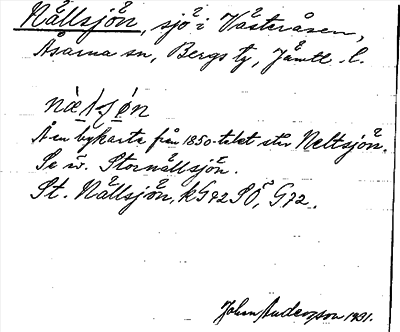 Nällsjön, sjö i Västeråsen,
Åsarna sn, Bergs tg, Jämtl. l.
Å en bykarta från 1850-talet står Neltsjön.
Se v. Stornällsjön.
St. Nällsjön, k G72 SÖ, G72.
Johan Anderson 1931.